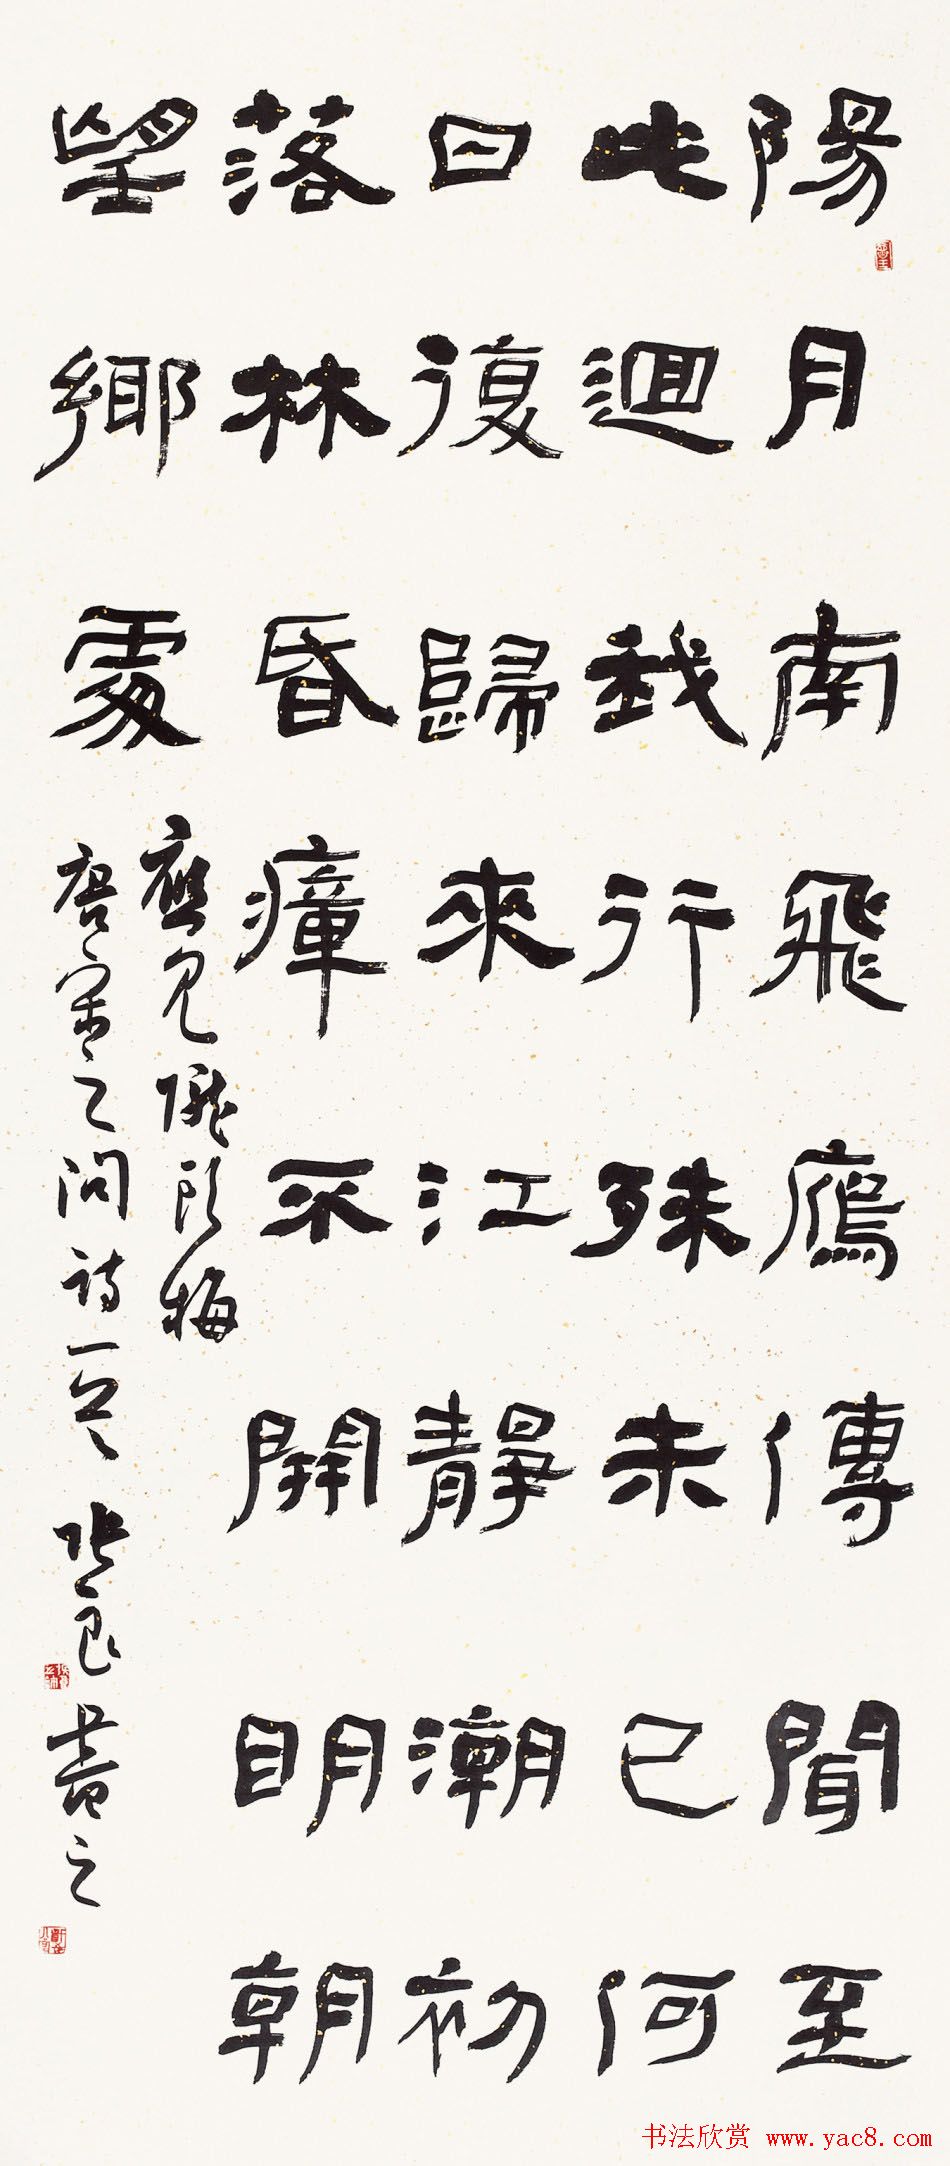 陽月南飛鴈傳聞至
此迴我行殊未已何
日復歸來江靜潮初
落林昏瘴不開明朝
望鄉處
應見隴頭梅
唐宋之問詩一首 張良勋書之
书法欣赏 www.yac8.com